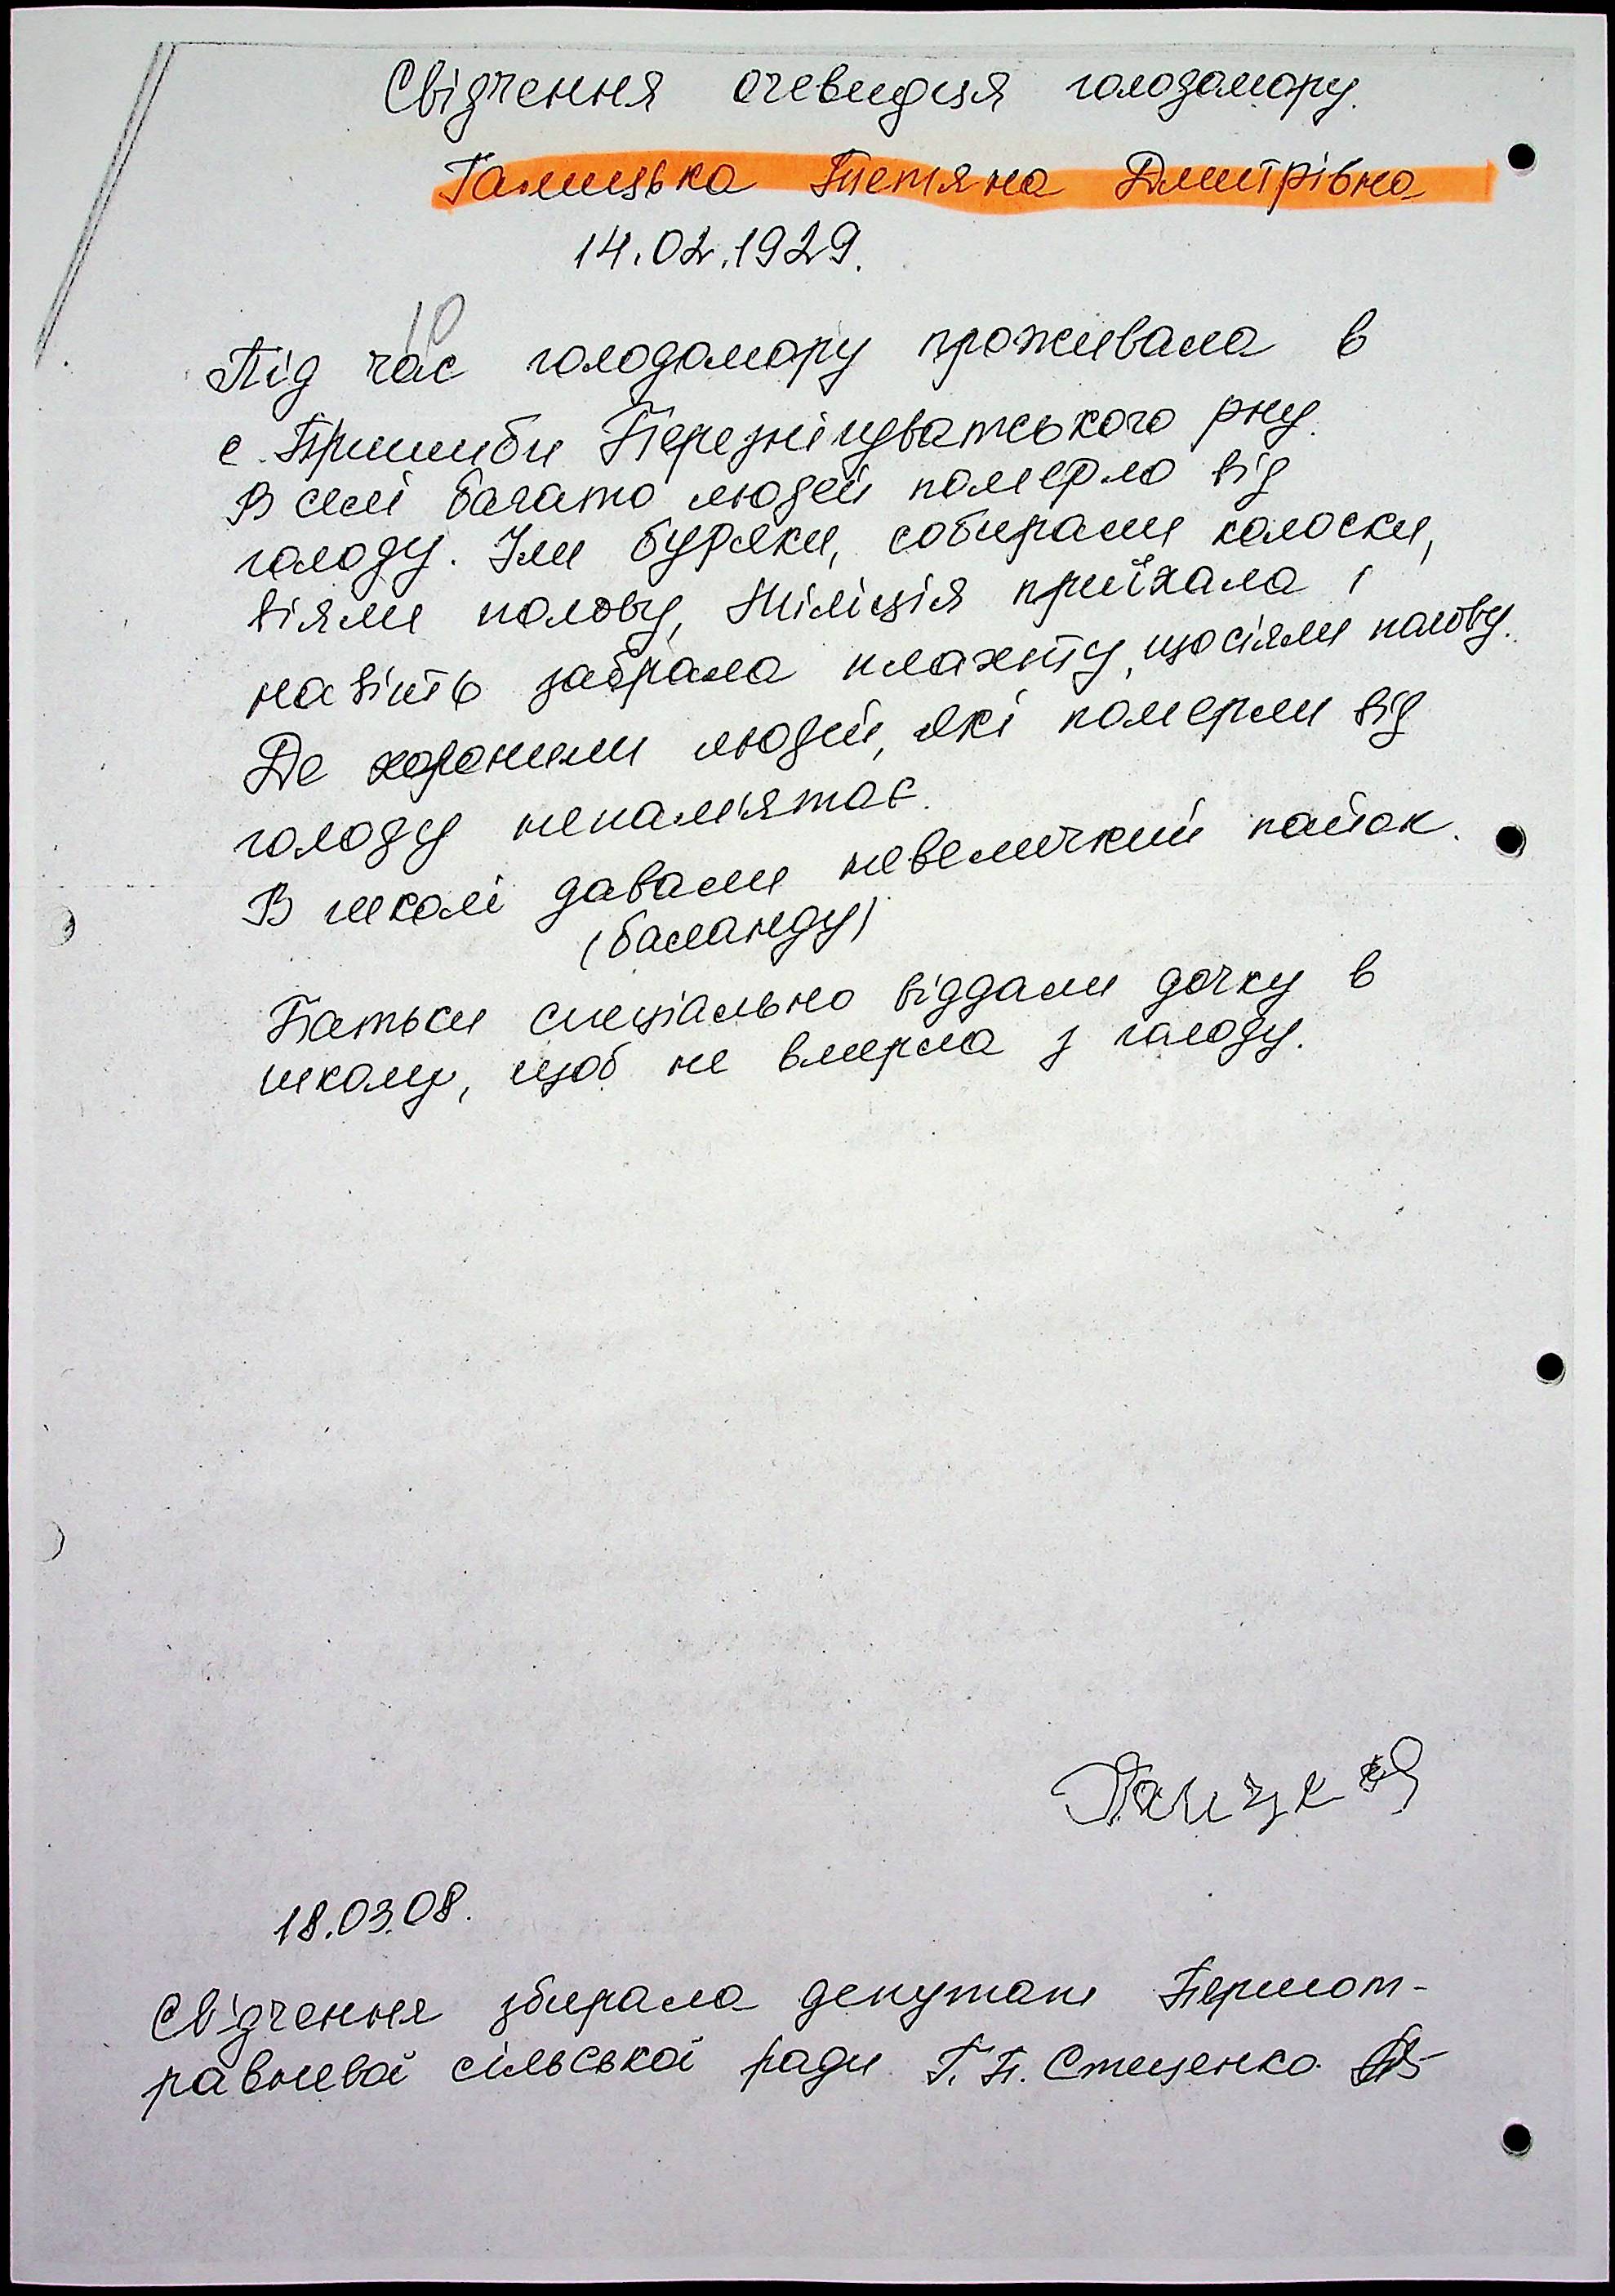 Свідчення очевидця голодомору.
Галицька Тетяна Дмитрівна
14.02.1929.
10
Під час голодомору проживала в
с. Пришиби Березнігуватського рну.
В селі багато людей померло від
голоду. Їли буряки, собирали колоски,
віяли полову, Міліція приїхала і
навіть забрала плахту, що сіяли полову.
Де хоронили людей, які померли від
голоду непам'ятає.
В школі давали невеличкий пайок.
(баланду)
Батьки спеціально віддали дочку в
школу, щоб не вмерла з голоду.
18.03.08.
Свідчення збирала депутат Бермот-
равневої сільської ради Г. П. Стеценко